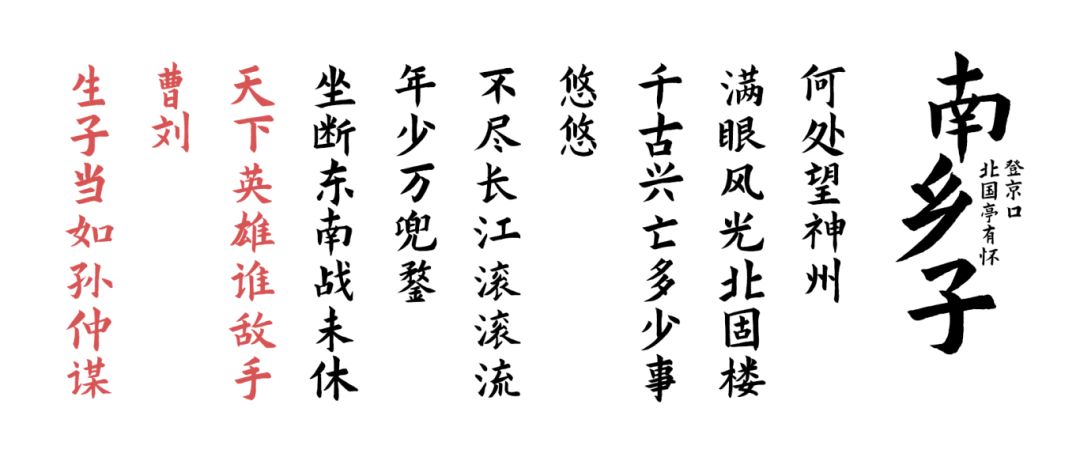 南乡子
登京口
北国亭有怀
何处望神州
满眼风光北固楼
千古兴亡多少事
悠悠
不尽长江滚滚流
年少万兜鍪
坐断东南战未休
天下英雄谁敌手
曹刘
生子当如孙仲谋